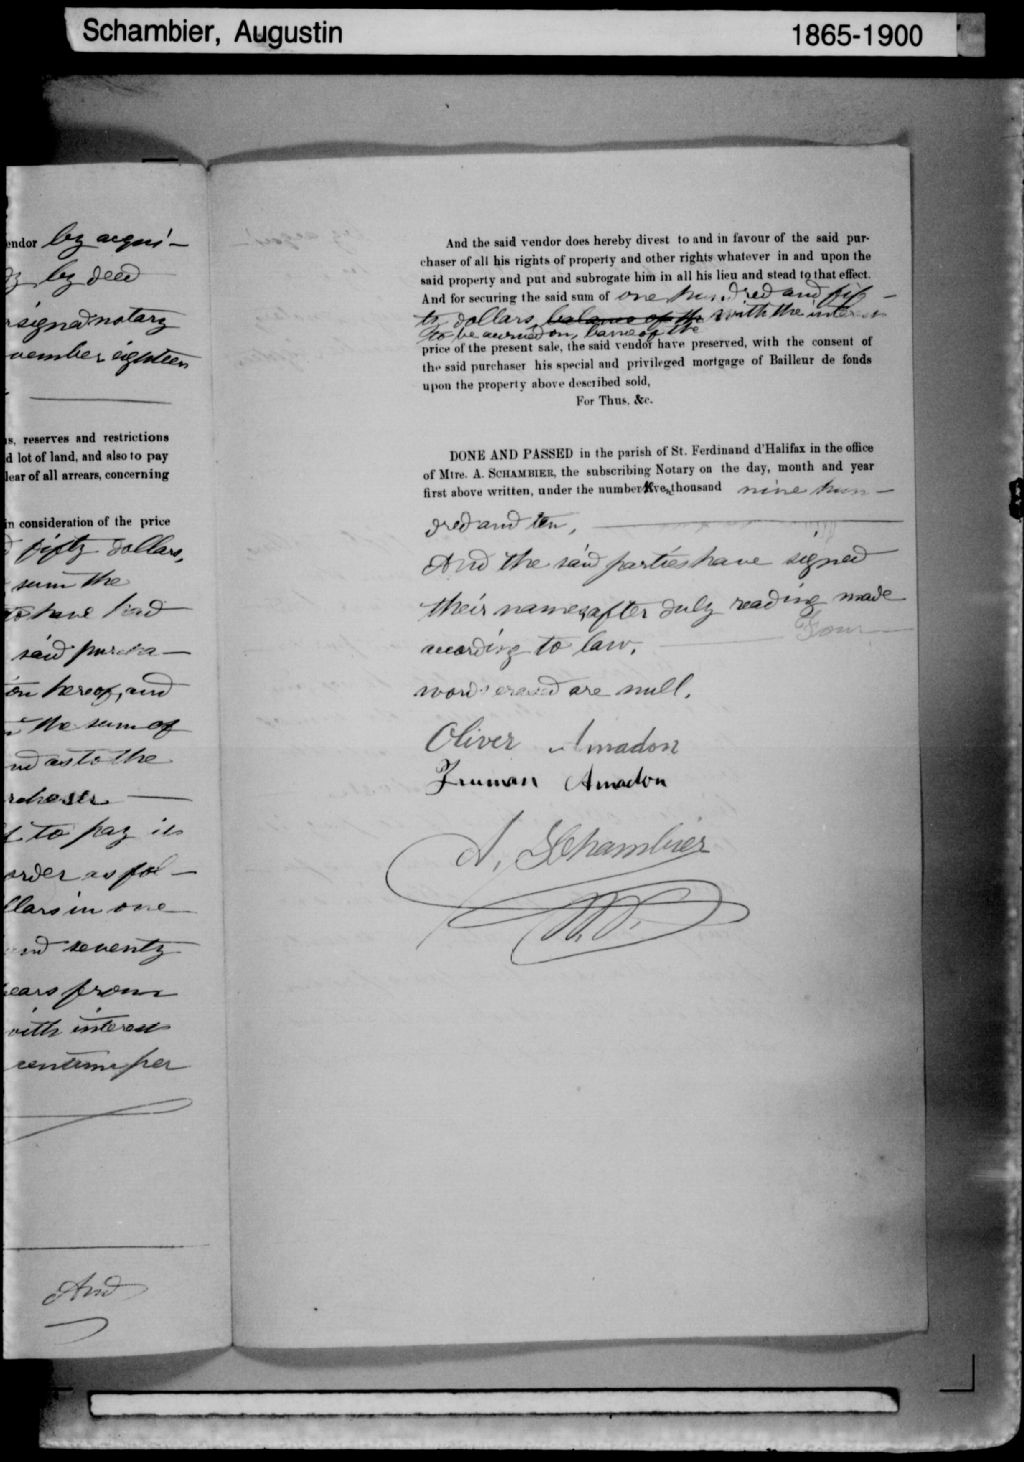 Schambier, Augustin 1865-1900
endor by acqui-
by deed
signed notary
vember eighteen
s, reserves and restrictions
d lot of land, and also to pay
lear of all arrears, concerning
in consideration of the price
fifty dollars,
sum the
to have had
said purcha-
on hereof, and
the sum of
nd as to the
rchaser
to pay it
order as fol-
llars in one
nd seventy
ears from
with interest
centum per
And
And the said vendor does hereby divest to and in favour of the said pur-
chaser of all his rights of property and other rights whatever in and upon the
said property and put and subrogate him in all his lieu and stead to that effect.
And for securing the said sum of one hundred and fif-
ty dollars, balance of the with the interest
to be accrued on, balance of the
price of the present sale, the said vendor have preserved, with the consent of
the said purchaser his special and privileged mortgage of Bailleur de fonds
upon the property above described sold,
For Thus, &c.
DONE AND PASSED in the parish of St. Ferdinand d'Halifax in the office
of Mtre. A. SCHAMBIER, the subscribing Notary on the day, month and year
first above written, under the number five thousand nine hun-
dred and ten,
And the said parties have signed
their names, after duly reading made
according to law. Four
words erased are null.
Oliver Amadon
Truman Amadon
A. Schambier
N.P.